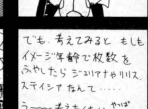 でも、考えてみると もしも
イメージ年齢で枚数を
ふやしたら ジェリナもリリス、
ステイシア なんて‥‥
う〜〜考えも やっぱ